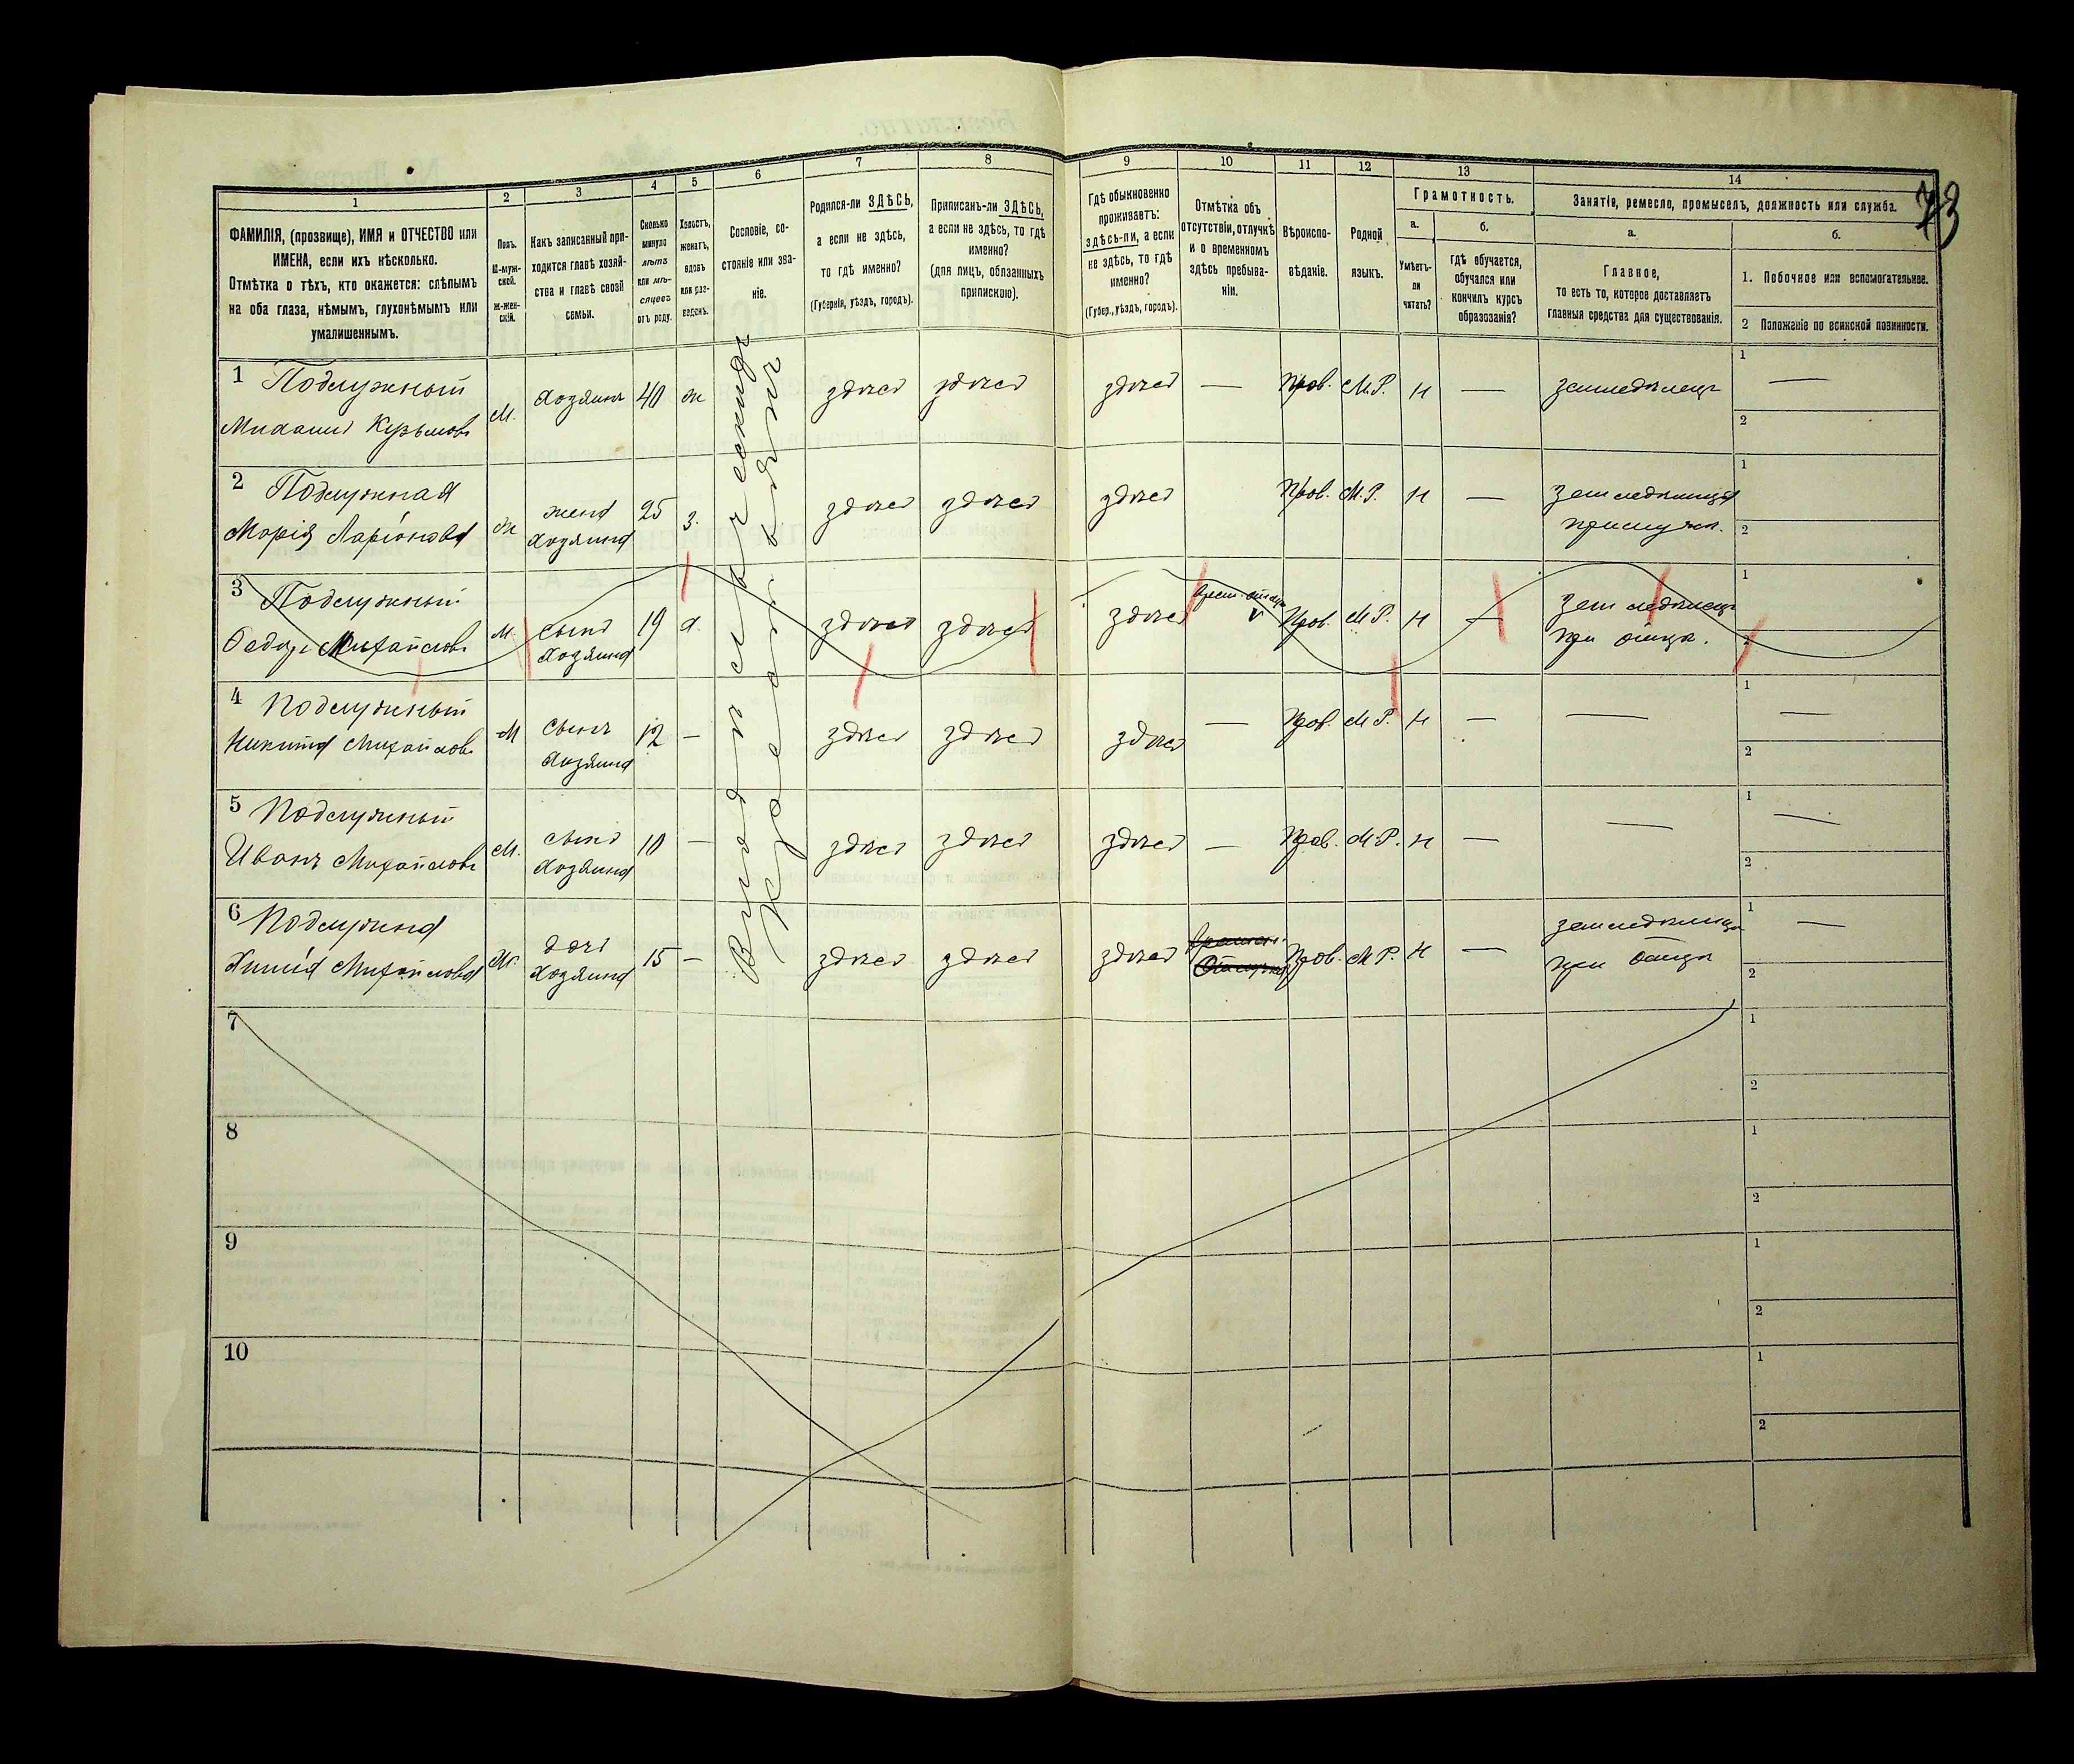 73
1
ФАМИЛІЯ, (прозвище), ИМЯ и ОТЧЕСТВО или
ИМЕНА, если ихъ нѣсколько.
Отмѣтка о тѣхъ, кто окажется: слѣпымъ
на оба глаза, нѣмымъ, глухонѣмымъ или
умалишеннымъ.
2
Полъ.
М-муж-
ской.
Ж-жен-
скій.
3
Какъ записанный при-
ходится главѣ хозяй-
ства и главѣ своей
семьи.
4
Сколько
минуло
лѣтъ
или мѣ-
сяцевъ
отъ роду.
5
Холостъ,
женатъ,
вдовъ
или раз-
веденъ.
6
Сословіе, со-
стояніе или зва-
ніе.
7
Родился-ли ЗДѢСЬ,
а если не здѣсь,
то гдѣ именно?
(Губернія, уѣздъ, городъ).
8
Приписанъ-ли ЗДѢСЬ,
а если не здѣсь, то гдѣ
именно?
(для лицъ, обязанныхъ
припискою).
9
Гдѣ обыкновенно
проживаетъ:
здѣсь-ли, а если
не здѣсь, то гдѣ
именно?
(Губер., уѣздъ, городъ).
10
Отмѣтка объ
отсутствіи, отлучкѣ
и о временномъ
здѣсь пребыва-
ніи.
11
Вѣроиспо-
вѣданіе.
12
Родной
языкъ.
13
Грамотность.
а.
Умѣетъ-
ли
читать?
б.
гдѣ обучается,
обучался или
кончилъ курсъ
образованія?
14
Занятіе, ремесло, промыселъ, должность или служба.
а.
Главное,
то есть то, которое доставляетъ
главныя средства для существованія.
б.
1. Побочное или вспомогательное.
2 Положеніе по воинской повинности.
1 Подлужный
Михаилъ Кузьмовъ
М. Хозяинъ 40 ж здѣсь здѣсь здѣсь — Прав. М.Р. н — земледѣлецъ
1 —
2
2 Подлужная
Марія Ларіонова
ж жена
хозяина
25 з. здѣсь здѣсь здѣсь Прав. М.Р. н —
земледѣлица
1
2
3 Подлужный
Федоръ Михайловъ
М. сынъ
хозяина
19 х. здѣсь здѣсь здѣсь Прав. М.Р. н —
земледѣлецъ
при отцѣ.
1
2
4 Подлужный
Никита Михайловъ
М сынъ
хозяина
12 — здѣсь здѣсь здѣсь — Прав. М.Р. н — —
1 —
2
5 Подлужный
Иванъ Михайловъ
М. сынъ
хозяина
10 — здѣсь здѣсь здѣсь — Прав. М.Р. н — —
1 —
2
6 Подлужная
Михайлова
Ж. дочь
хозяина
15 — здѣсь здѣсь здѣсь Прав. М.Р. н —
земледѣлица
при отцѣ
1 —
2
7
1
2
8
1
2
9
1
2
10
1
2